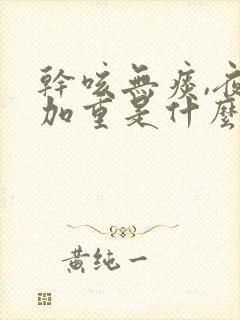 幹咳無痰,夜
加重是什麼
黄纯一